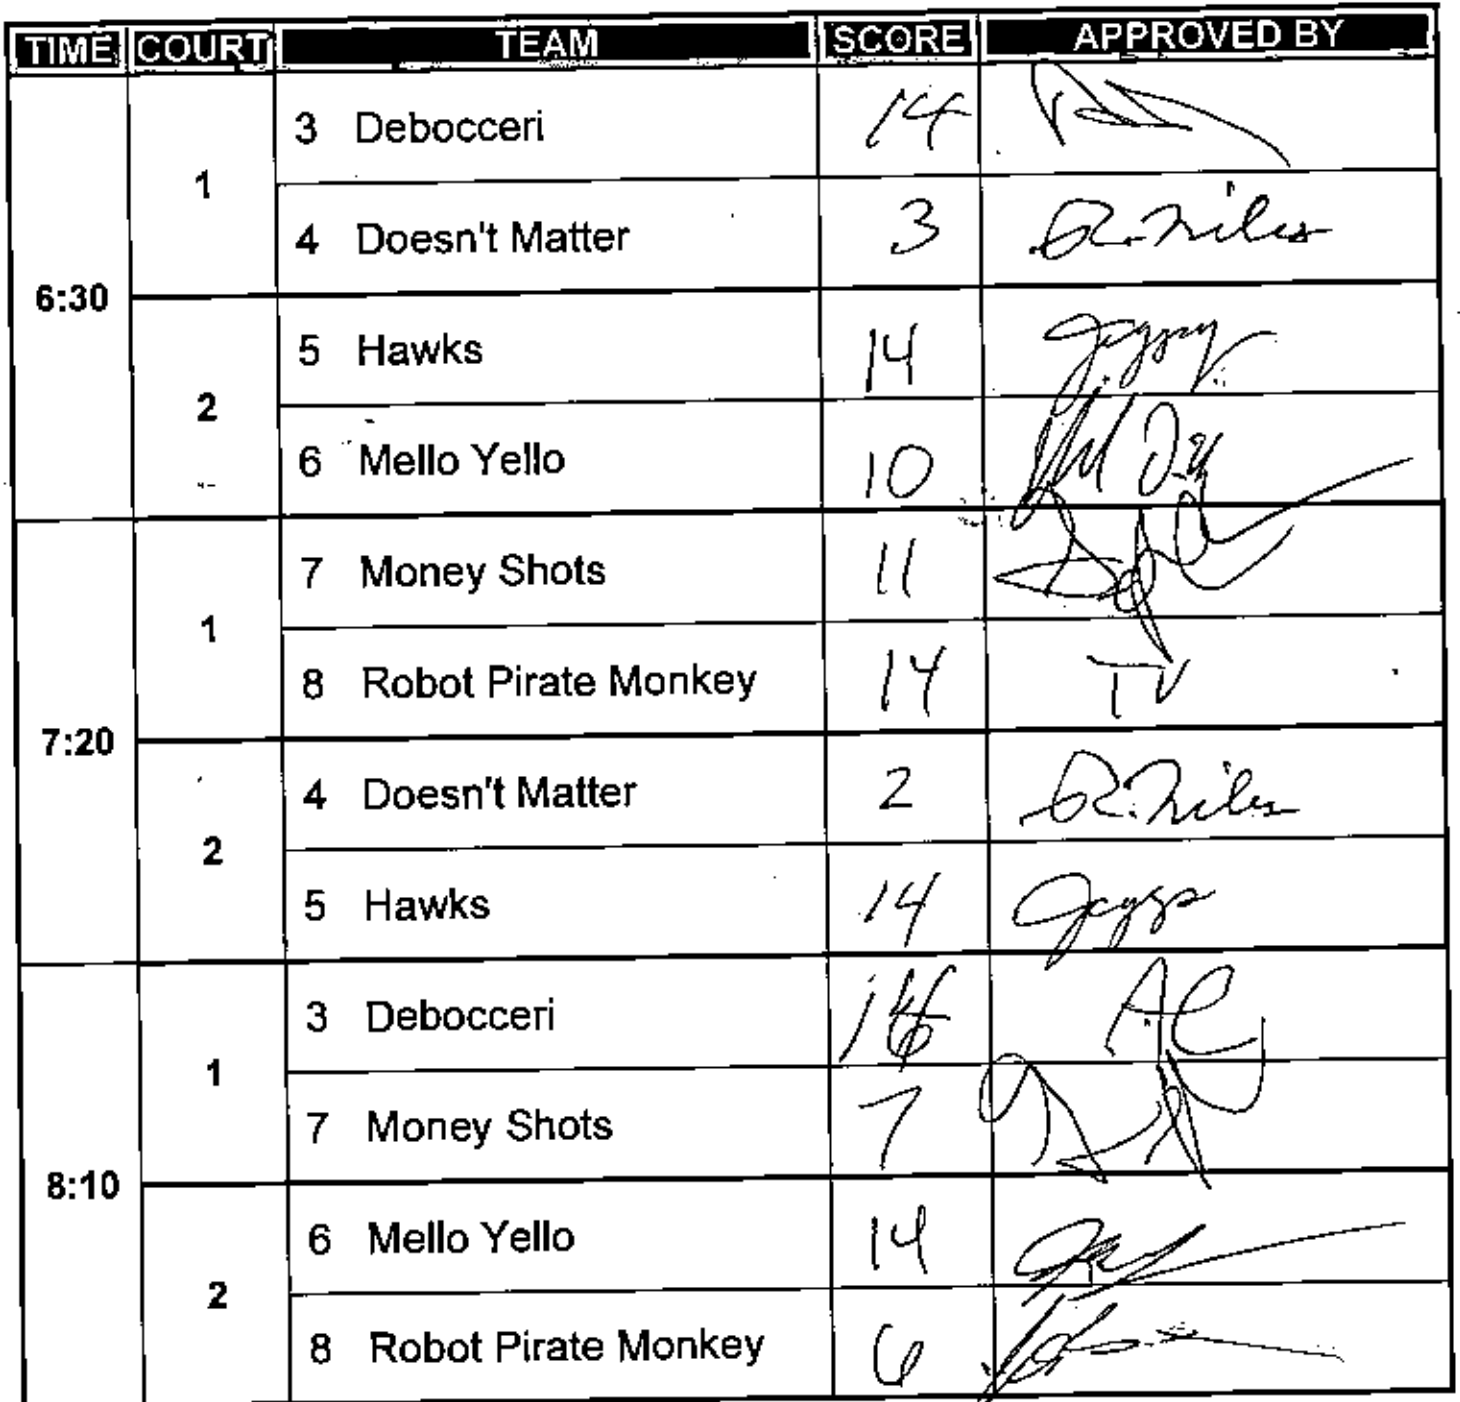 TIME COURT TEAM SCORE APPROVED BY
6:30
1
3 Debocceri 14
4 Doesn't Matter 3 R. Niles
2
5 Hawks 14
6 Mello Yello 10
7:20
1
7 Money Shots 11
8 Robot Pirate Monkey 14 TV
2
4 Doesn't Matter 2 R. Niles
5 Hawks 14
8:10
1
3 Debocceri
7 Money Shots 7
2
6 Mello Yello 14
8 Robot Pirate Monkey 6